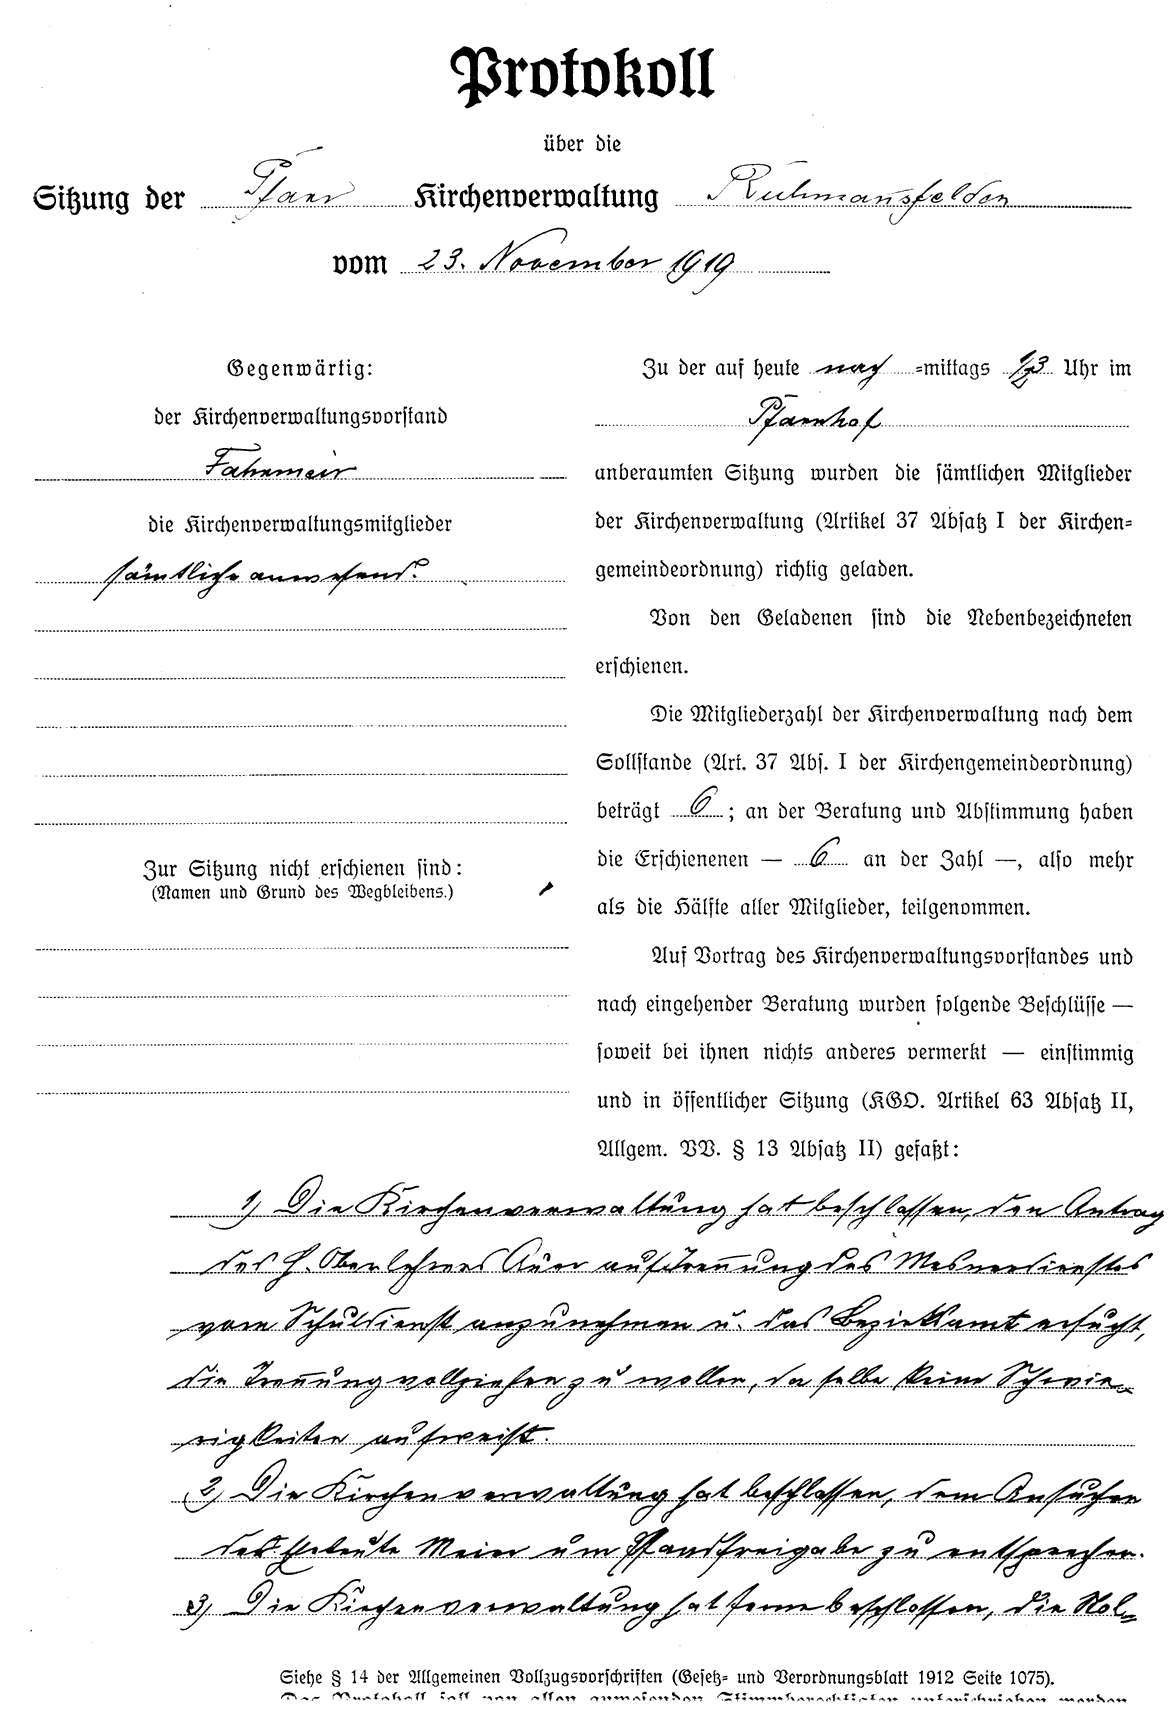 Protokoll
über die
Sitzung der Pfarr Kirchenverwaltung Ruhmannsfelden
vom 23. November 1919
Gegenwärtig:
der Kirchenverwaltungsvorstand
Fahrmeir
die Kirchenverwaltungsmitglieder
sämtliche anwesend.
Zur Sitzung nicht erschienen sind:
(Namen und Grund des Wegbleibens.)
Zu der auf heute nach =mittags 1/2 3 Uhr im
Pfarrhof
anberaumten Sitzung wurden die sämtlichen Mitglieder
der Kirchenverwaltung (Artikel 37 Absatz I der Kirchen=
gemeindeordnung) richtig geladen.
Von den Geladenen sind die Nebenbezeichneten
erschienen.
Die Mitgliederzahl der Kirchenverwaltung nach dem
Sollstande (Art. 37 Abs. I der Kirchengemeindeordnung)
beträgt 6; an der Beratung und Abstimmung haben
die Erschienenen — 6 an der Zahl —, also mehr
als die Hälfte aller Mitglieder, teilgenommen.
Auf Vortrag des Kirchenverwaltungsvorstandes und
nach eingehender Beratung wurden folgende Beschlüsse —
soweit bei ihnen nichts anderes vermerkt — einstimmig
und in öffentlicher Sitzung (KGO. Artikel 63 Absatz II,
Allgem. VV. § 13 Absatz II) gefaßt:
1) Die Kirchenverwaltung hat beschlossen, den Antrag
des H. Oberlehrers Auer auf Trennung des Mesnerdienstes
vom Schuldienst anzunehmen u. das Bezirksamt ersucht,
die Trennung vollziehen zu wollen, da selbe keine Schwie=
rigkeiten aufweist.
2) Die Kirchenverwaltung hat beschlossen, dem Ansuchen
der Eheleute Meier um Pfandfreigabe zu entsprechen.
3) Die Kirchenverwaltung hat ferner beschlossen, die Hol=
Siehe § 14 der Allgemeinen Vollzugsvorschriften (Gesetz= und Verordnungsblatt 1912 Seite 1075).
Das Protokoll soll von allen anwesenden Stimmberechtigten unterschrieben werden